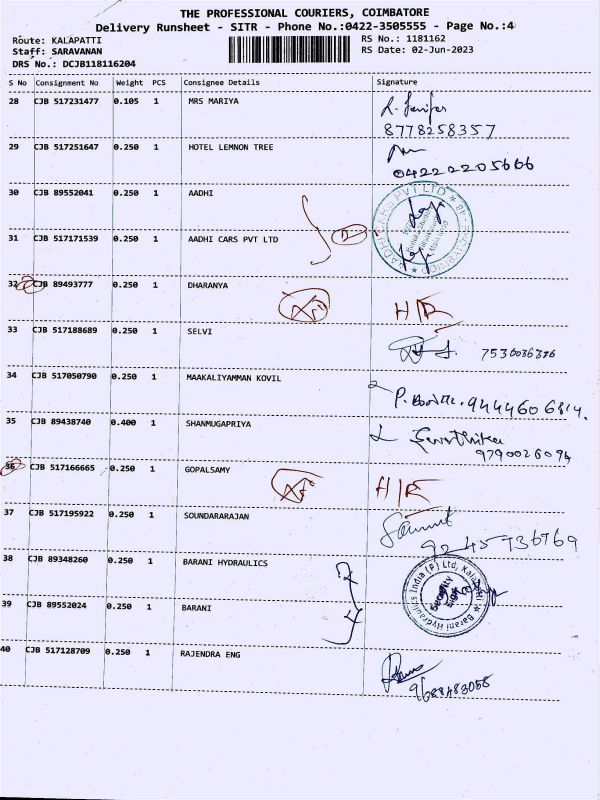 THE PROFESSIONAL COURIERS, COIMBATORE
Delivery Runsheet - SITR - Phone No.:0422-3505555 - Page No.:4
Route: KALAPATTI RS No.: 1181162
Staff: SARAVANAN RS Date: 02-Jun-2023
DRS No.: DCJB118116204
S No Consignment No Weight PCS Consignee Details Signature
28 CJB 517231477 0.105 1 MRS MARIYA
8778258357
29 CJB 517251647 0.250 1 HOTEL LEMNON TREE
04222205666
30 CJB 89552041 0.250 1 AADHI
31 CJB 517171539 0.250 1 AADHI CARS PVT LTD
32 CJB 89493777 0.250 1 DHARANYA H/R
33 CJB 517188689 0.250 1 SELVI
7530036326
34 CJB 517050790 0.250 1 MAAKALIYAMMAN KOVIL
9444606814.
35 CJB 89438740 0.400 1 SHANMUGAPRIYA
9790026094
36 CJB 517166665 0.250 1 GOPALSAMY H/R
37 CJB 517195922 0.250 1 SOUNDARARAJAN
9245936769
38 CJB 89348260 0.250 1 BARANI HYDRAULICS
Barani Hydraulics India (P) Ltd,
39 CJB 89552024 0.250 1 BARANI
40 CJB 517128709 0.250 1 RAJENDRA ENG
9688483058